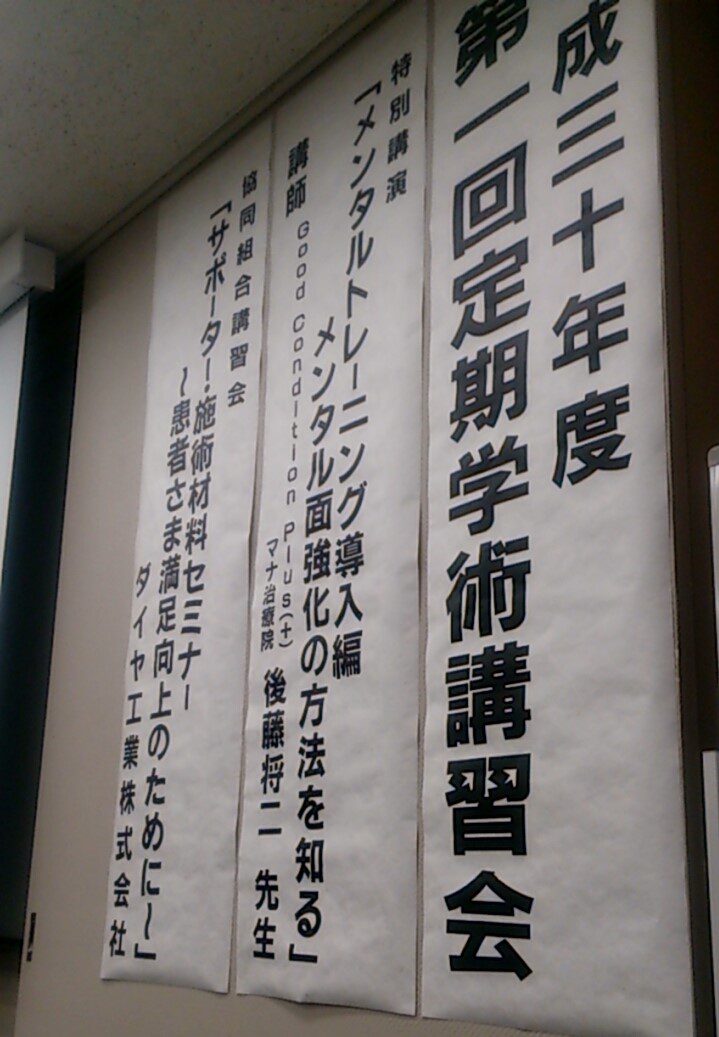 成三十年度
第一回定期学術講習会
特別講演
「メンタルトレーニング導入編
メンタル面強化の方法を知る」
講師 Good Condition Plus(+)
マナ治療院 後藤将二 先生
協同組合講習会
「サポーター・施術材料セミナー
~患者さま満足向上のために~」
ダイヤ工業株式会社